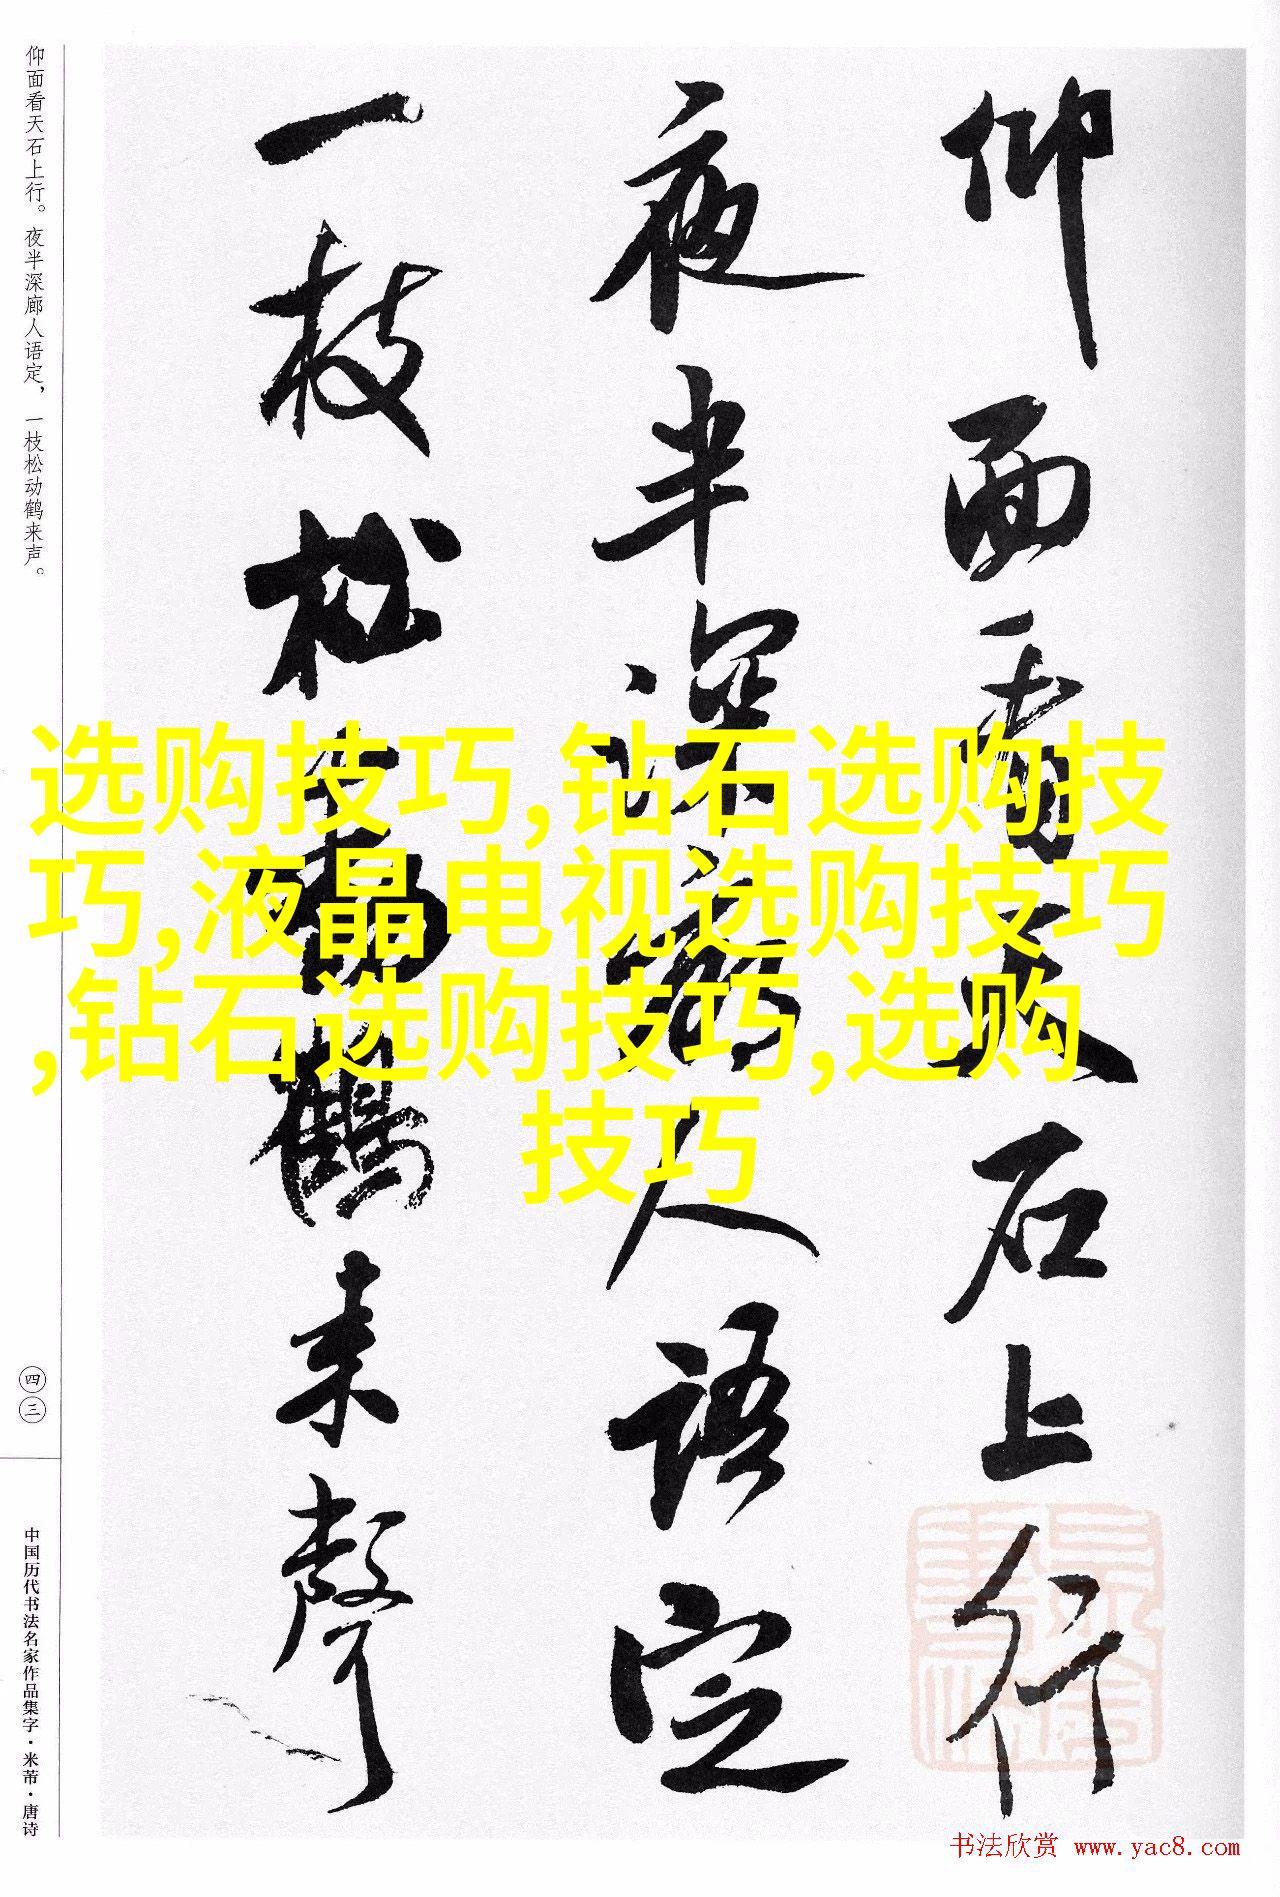 仰面看天石上行
夜半深廊人语定
一枝松动鹤来声
仰面看天石上行。夜半深廊人语定，一枝松动鹤来声。
四三
中国历代书法名家作品集字·米芾·唐诗
选购技巧,钻石选购技
巧,液晶电视选购技巧
,钻石选购技巧,选购
技巧
书法欣赏 www.yac8.com